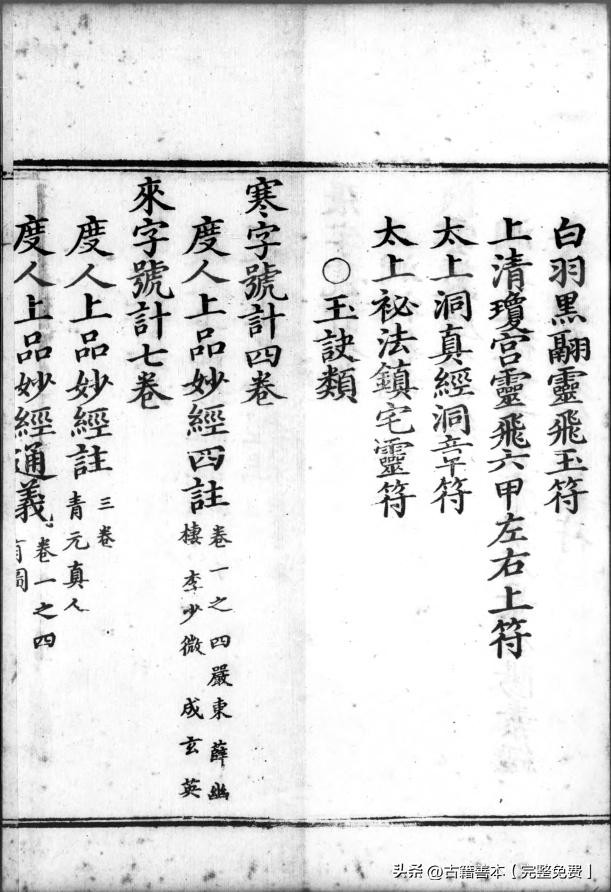 白羽黑翮靈飛玉符
上清瓊宮靈飛六甲左右上符
太上洞真經洞章符
太上祕法鎮宅靈符
○玉訣類
寒字號計四卷
度人上品妙經四註 卷一之四嚴東薛幽
棲李少微成玄英
來字號計七卷
度人上品妙經註 三卷
青元真人
度人上品妙經通義 卷一之四
有圖
头条@古籍善本【完整免费】